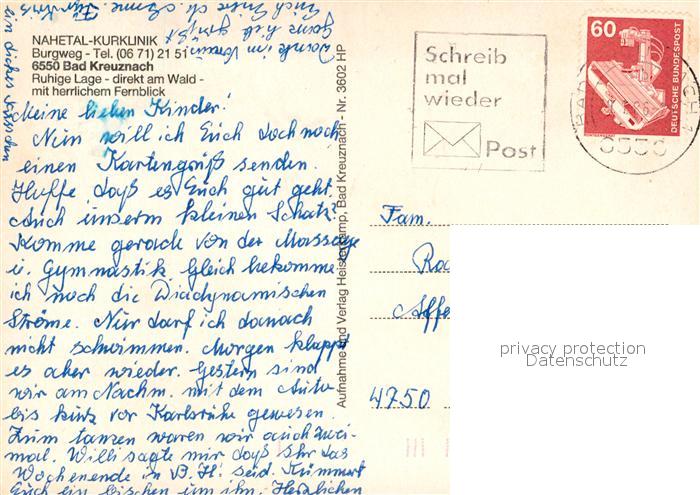 NAHETAL-KURKLINIK
Burgweg - Tel. (06 71) 21 51
6550 Bad Kreuznach
Ruhige Lage - direkt am Wald -
mit herrlichem Fernblick
Meine lieben Kinder!
Nun will ich Euch doch noch
einen Kartengruß senden.
Hoffe daß es Euch gut geht.
Auch unserm kleinen Schatz?
Komme gerade von der Massage
u. Gymnastik. Gleich bekomme
ich noch die Diadynamischen
Ströme. Nur darf ich danach
nicht schwimmen. Morgen klappt
es aber wieder. Gestern sind
wir am Nachm. mit dem Auto
bis kurz vor Karlsruhe gewesen.
Zum tanzen waren wir auch zwei-
mal. Willi sagte mir daß Ihr das
Wochenende in B.H. seid. Kümmert
Euch ein bischen um ihn. Herzlichen
ein dickes Küsschen
Aufnahme und Verlag Heisterkamp, Bad Kreuznach - Nr. 3602 HP
Schreib
mal
wieder
Post
60
DEUTSCHE BUNDESPOST
Fam.
4750
privacy protection
Datenschutz